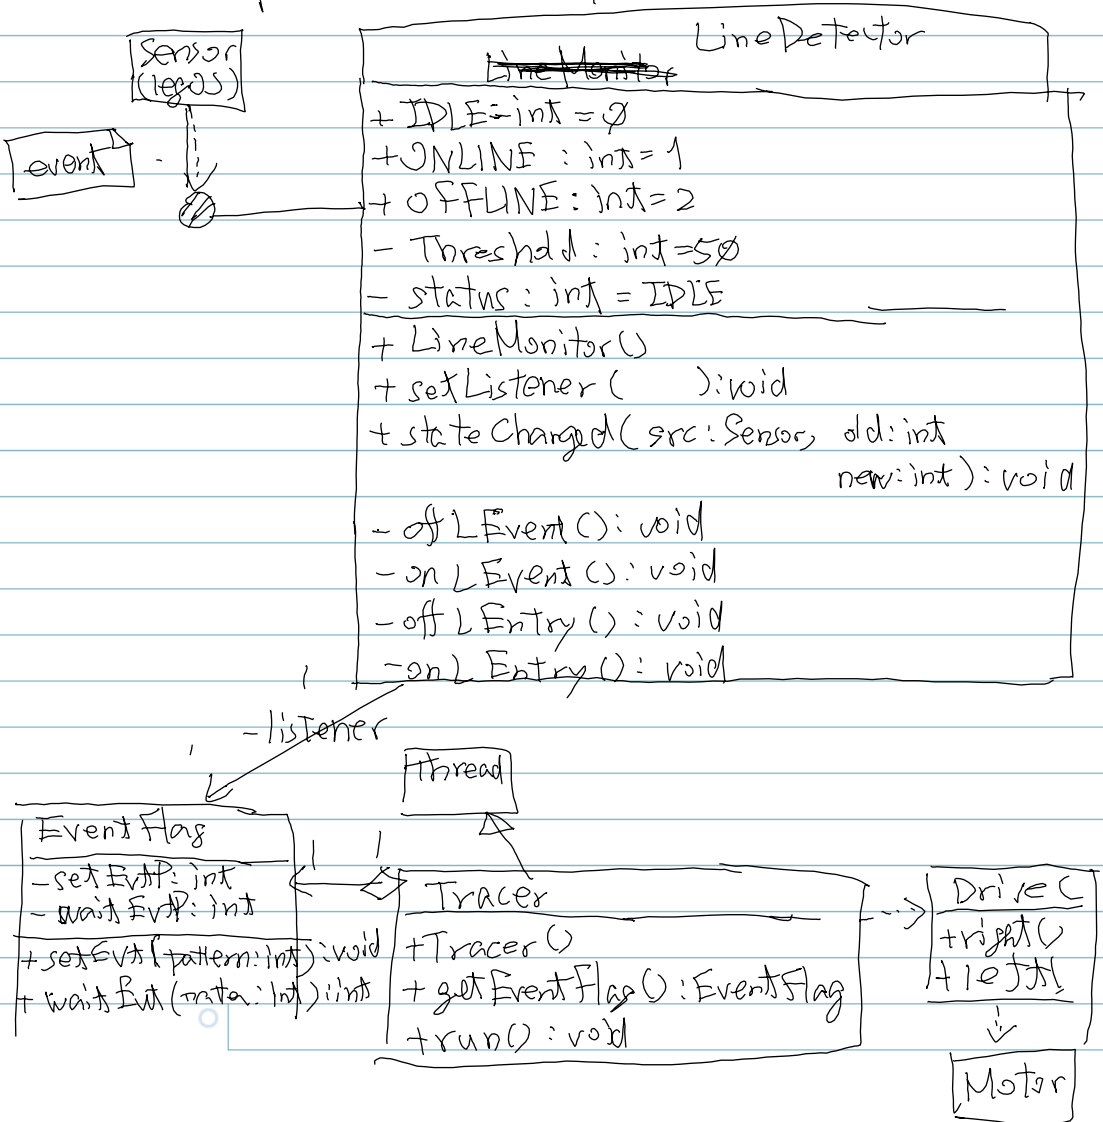 LineDetector
Sensor
(legOS)
Line Monitor
+ IDLE:int = 0
event
+ONLINE : int=1
+ OFFLINE : int=2
- Threshold : int=50
- status : int = IDLE
+ LineMonitor()
+ setListener ( ):void
+ stateChanged(src:Sensor, old:int
new:int):void
- offLEvent(): void
- onLEvent(): void
- offLEntry() : void
- onLEntry(): void
1
-listener
1
Thread
EventFlag
1
1
- setEvtP: int
- waitEvtP: int
+setEvt(pattern:int):void
+ waitEvt( :int):int
Tracer
+Tracer()
+ getEventFlag():EventFlag
+run() : void
DriveC
+right()
+left(
Motor